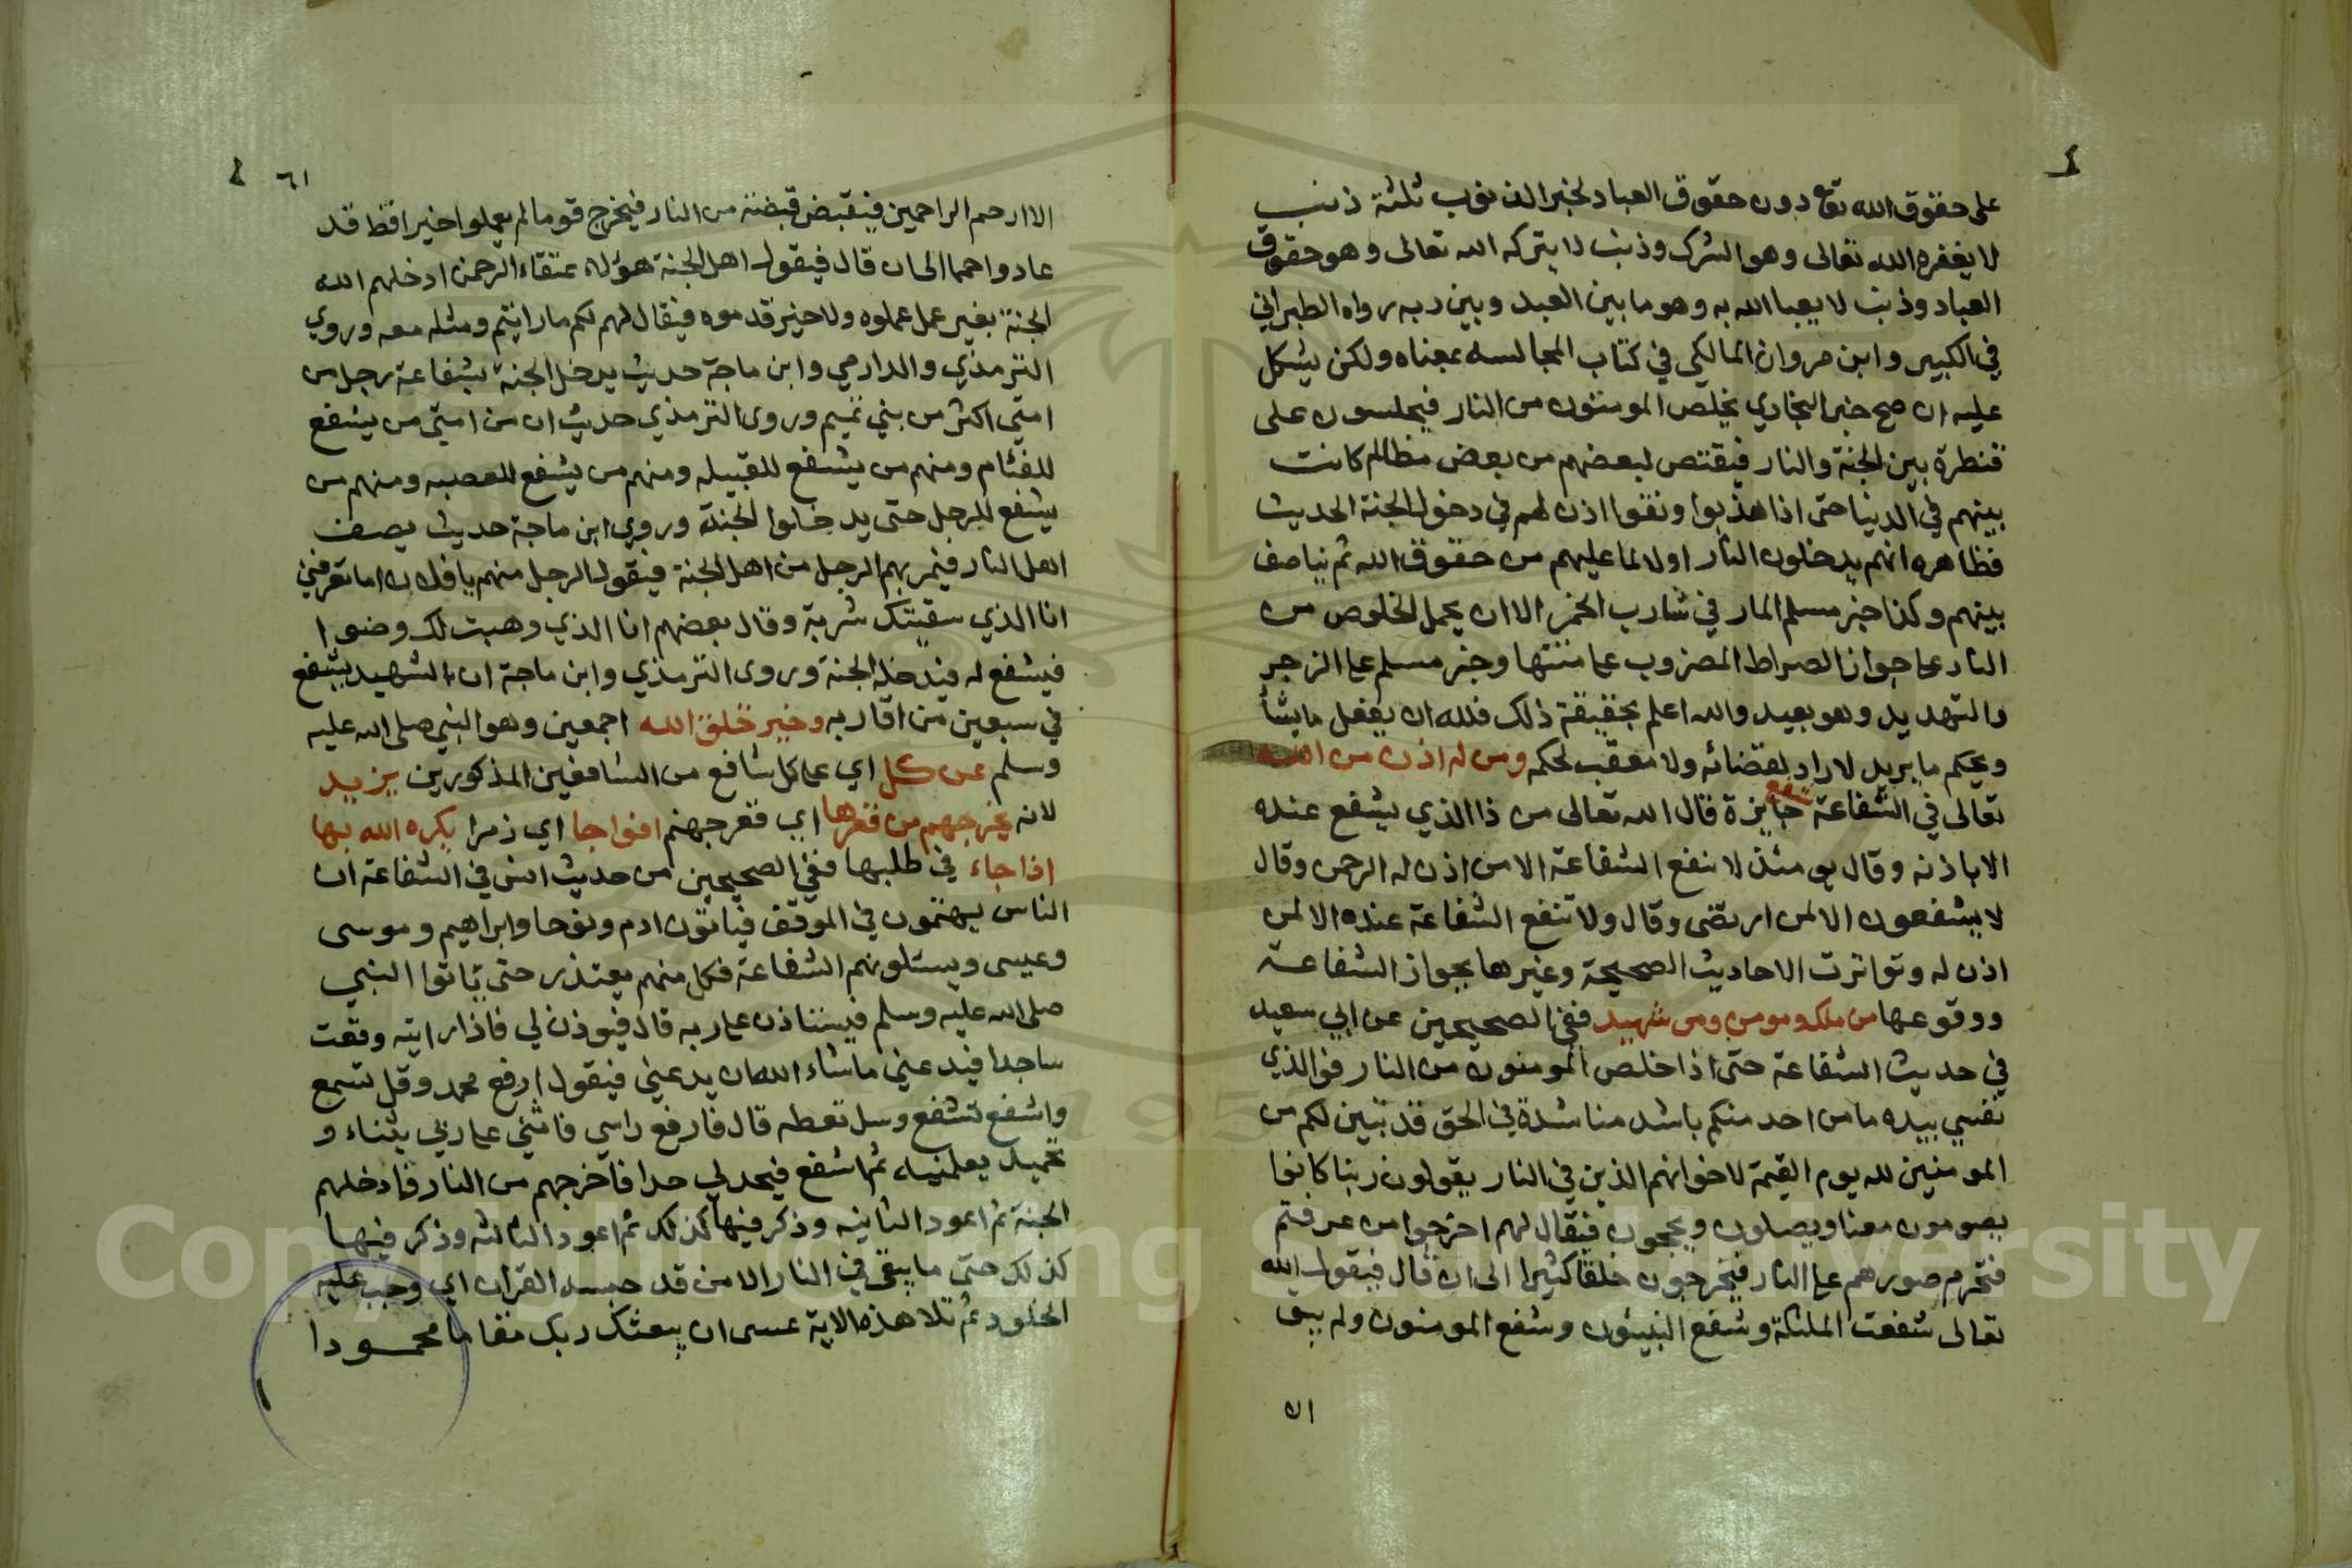 على حقوق الله تع دون حقوق العباد لخبر الذنوب ثلثة ذنب
لا يغفره الله تعالى وهو الشرك وذنب لا يتركه الله تعالى وهو حقوق
العباد وذنب لا يعبا الله به وهو ما بين العبد وبين ربه رواه الطبراني
في الكبير وابن مروان المالكي في كتاب المجالسه بمعناه ولكن يشكل
عليه ان صح خبر البخاري يخلص المومنون من النار فيحبسون على
قنطرة بين الجنة والنار فيقتص لبعضهم من بعض مظالم كانت
بينهم في الدنيا حتى اذا هذبوا ونقوا اذن لهم في دخول الجنة الحديث
فظاهره انهم يدخلون النار اولا لما عليهم من حقوق الله ثم يتناصف
بينهم وكذا خبر مسلم المار في شارب الخمر الا ان يحمل الخلوص من
النار على جواز الصراط المضروب على متنها وخبر مسلم على الزجر
والتهديد وهو بعيد والله اعلم بحقيقة ذلك فلله ان يفعل ما يشأ
ويحكم ما يريد لا راد لقضائه ولا معقب لحكمه ومن له اذن من الله
شفع
تعالى في الشفاعة جايزة قال الله تعالى من ذا الذي يشفع عنده
الا باذنه وقال يومئذ لا تنفع الشفاعة الا من اذن له الرحمن وقال
لا يشفعون الا لمن ارتضى وقال ولا تنفع الشفاعة عنده الا لمن
اذن له وتواترت الاحاديث الصحيحة وغيرها بجواز الشفاعة
ووقوعها من ملك ومومن ومن شهيد ففي الصحيحين عن ابي سعيد
في حديث الشفاعة حتى اذا خلص المومنون من النار فوالذي
نفسي بيده ما من احد منكم باشد مناشدة في الحق قد تبين لكم من
المومنين لله يوم القيمة لاخوانهم الذين في النار يقولون ربنا كانوا
يصومون معنا ويصلون ويحجون فيقال لهم اخرجوا من عرفتم
فتحرم صورهم على النار فيخرجون خلقا كثيرا الى ان قال فيقول الله
تعالى شفعت الملئكة وشفع النبيئون وشفع المومنون ولم يبق
الا
٦١
الا ارحم الراحمين فيقبض قبضة من النار فيخرج قوما لم يعملوا خيرا قط قد
عادوا حمما الى ان قال فيقول اهل الجنة هؤلاء عتقاء الرحمن ادخلهم الله
الجنة بغير عمل عملوه ولا خير قدموه فيقال لهم لكم ما رايتم ومثله معه وروي
الترمذي والدارمي وابن ماجة حديث يدخل الجنة بشفاعة رجل من
امتي اكثر من بني تميم وروى الترمذي حديث ان من امتي من يشفع
للفئام ومنهم من يشفع للقبيله ومنهم من يشفع للعصبه ومنهم من
يشفع للرجل حتى يدخلوا الجنة وروي ابن ماجة حديث يصف
اهل النار فيمر بهم الرجل من اهل الجنة فيقول الرجل منهم يا فلان اما تعرفني
انا الذي سقيتك شربة وقال بعضهم انا الذي وهبت لك وضوءا
فيشفع له فيدخله الجنة وروى الترمذي وابن ماجة ان الشهيد يشفع
في سبعين من اقاربه وخير خلق الله اجمعين وهو النبي صلى الله عليه
وسلم عن كل اي على كل شافع من الشافعين المذكورين يزيد
لانه يخرجهم من قعرها اي قعر جهنم افواجا اي زمرا يكره الله بها
اذا جاء في طلبها ففي الصحيحين من حديث انس في الشفاعة ان
الناس يهتمون في الموقف فياتون ادم ونوحا وابراهيم وموسى
وعيسى ويسئلونهم الشفاعة فكل منهم يعتذر حتى ياتوا النبي
صلى الله عليه وسلم فيستاذن على ربه قال فيوذن لي فاذا رايته وقعت
ساجدا فيدعني ماشاء الله ان يدعني فيقول ارفع محمد وقل تسمع
واشفع تشفع وسل تعطه قال فارفع راسي فاثني على ربي بثناء و
تحميد يعلمنيه ثم اشفع فيحد لي حدا فاخرجهم من النار فادخلهم
الجنة ثم اعود الثانيه وذكر فيها كذلك ثم اعود الثالثه وذكر فيها
كذلك حتى ما يبقى في النار الا من قد حبسه القران اي وجب عليه
الخلود ثم تلا هذه الاية عسى ان يبعثك ربك مقاما محمودا
Copyright © King Saud University